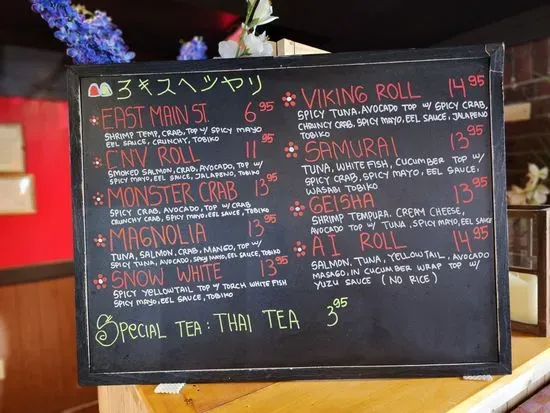 ろキスヘシヤリ
EAST MAIN ST. 6.95
SHRIMP TEMP, CRAB, TOP W/ SPICY MAYO
EEL SAUCE, CRUNCHY, TOBIKO
CNY ROLL 11.95
SMOKED SALMON, CRAB, AVOCADO, TOP W/
SPICY MAYO, EEL SAUCE, JALAPENO, TOBIKO
MONSTER CRAB 13.95
SPICY CRAB, AVOCADO TOP W/ CRAB
CRUNCHY CRAB, SPICY MAYO, EEL SAUCE, TOBIKO
MAGNOLIA 13.95
TUNA, SALMON, CRAB, MANGO, TOP W/
SPICY TUNA, AVOCADO, SPICY MAYO, EEL SAUCE, TOBIKO
SNOW WHITE 13.95
SPICY YELLOWTAIL TOP W/ TORCH WHITE FISH
SPICY MAYO, EEL SAUCE, TOBIKO
VIKING ROLL 14.95
SPICY TUNA, AVOCADO TOP W/ SPICY CRAB,
CRUNCHY CRAB, SPICY MAYO, EEL SAUCE, JALAPENO
TOBIKO
SAMURAI 13.95
TUNA, WHITE FISH, CUCUMBER TOP W/
SPICY CRAB, SPICY MAYO, EEL SAUCE,
WASABI TOBIKO
GEISHA 13.95
SHRIMP TEMPURA, CREAM CHEESE,
AVOCADO TOP W/ TUNA, SPICY MAYO, EEL SAUCE
A.I. ROLL 14.95
SALMON, TUNA, YELLOWTAIL, AVOCADO
MASAGO, IN CUCUMBER WRAP TOP W/
YUZU SAUCE (NO RICE)
SPECIAL TEA: THAI TEA 3.95